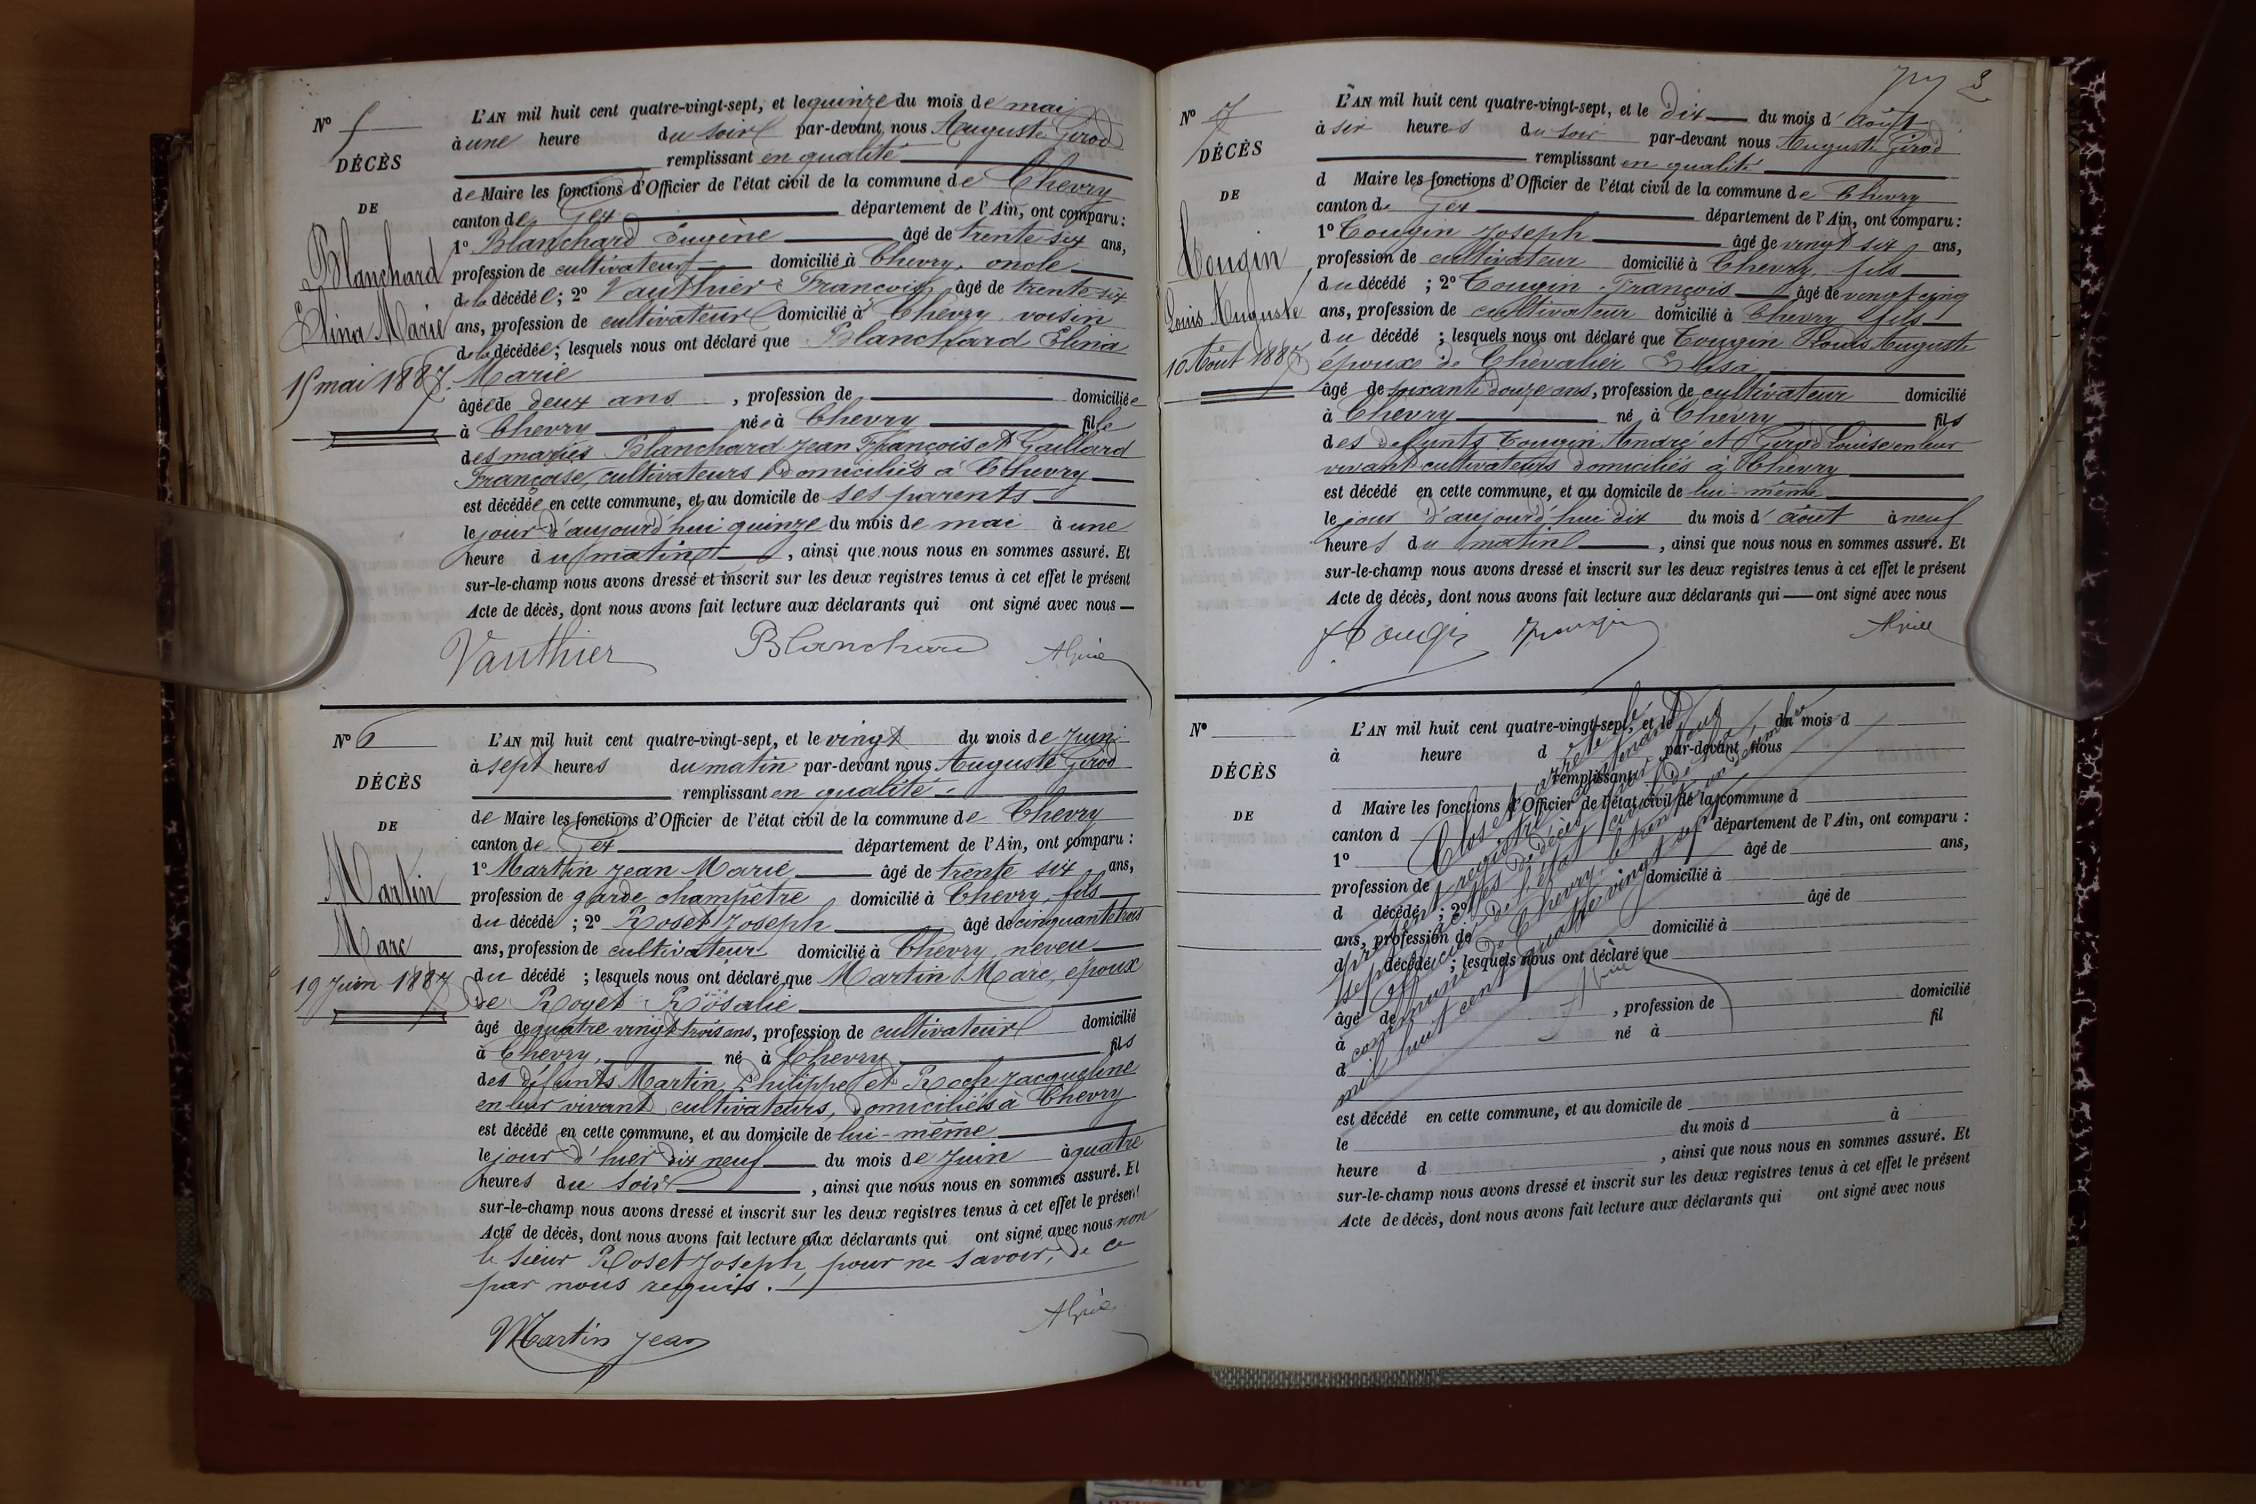 N° 5
DÉCÈS
DE
Blanchard
Elina Marie
15 mai 1887.
L'AN mil huit cent quatre-vingt-sept, et le quinze du mois de mai
à une heure du soir par-devant nous Auguste Girod
remplissant en qualité
de Maire les fonctions d'Officier de l'état civil de la commune de Chevry
canton de Gex département de l'Ain, ont comparu :
1° Blanchard Eugène âgé de trente six ans,
profession de cultivateur domicilié à Chevry, oncle
de la décédée ; 2° Vauthier François âgé de trente-six
ans, profession de cultivateur domicilié à Chevry voisin
de la décédée ; lesquels nous ont déclaré que Blanchard Elina
Marie
âgée de deux ans , profession de domiciliée
à Chevry née à Chevry fille
des mariés Blanchard Jean François et Gaillard
Françoise, cultivateurs domiciliés à Chevry
est décédée en cette commune, et au domicile de ses parents
le jour d'aujourd'hui quinze du mois de mai à une
heure du matin , ainsi que nous nous en sommes assuré. Et
sur-le-champ nous avons dressé et inscrit sur les deux registres tenus à cet effet le présent
Acte de décès, dont nous avons fait lecture aux déclarants qui ont signé avec nous
Vauthier Blanchard
N° 6
DÉCÈS
DE
Martin
Marc
19 Juin 1887
L'AN mil huit cent quatre-vingt-sept, et le vingt du mois de Juin
à sept heures du matin par-devant nous Auguste Girod
remplissant en qualité
de Maire les fonctions d'Officier de l'état civil de la commune de Chevry
canton de Gex département de l'Ain, ont comparu :
1° Martin Jean Marie âgé de trente six ans,
profession de garde champêtre domicilié à Chevry, fils
du décédé ; 2° Roset Joseph âgé de cinquante trois
ans, profession de cultivateur domicilié à Chevry, neveu
du décédé ; lesquels nous ont déclaré que Martin Marc, époux
de Royet Rosalie
âgé de quatre vingt trois ans, profession de cultivateur domicilié
à Chevry, né à Chevry fils
des défunts Martin Philippe et Roch Jacqueline
en leur vivant cultivateurs, domiciliés à Chevry
est décédé en cette commune, et au domicile de lui-même
le jour d'hier dix neuf du mois de Juin à quatre
heures du soir , ainsi que nous nous en sommes assuré. Et
sur-le-champ nous avons dressé et inscrit sur les deux registres tenus à cet effet le présent
Acte de décès, dont nous avons fait lecture aux déclarants qui ont signé avec nous non
le sieur Roset Joseph, pour ne savoir, de ce
par nous requis.
Martin Jean
3
N° 7
DÉCÈS
DE
Tougin
Louis Auguste
10 Août 1887
L'AN mil huit cent quatre-vingt-sept, et le dix du mois d'août
à six heures du soir par-devant nous Auguste Girod
remplissant en qualité
d Maire les fonctions d'Officier de l'état civil de la commune de Chevry
canton de Gex département de l'Ain, ont comparu :
1° Tougin Joseph âgé de vingt six ans,
profession de cultivateur domicilié à Chevry, fils
du décédé ; 2° Tougin François âgé de vingt cinq
ans, profession de cultivateur domicilié à Chevry fils
du décédé ; lesquels nous ont déclaré que Tougin Louis Auguste
époux de Chevalier Elisa
âgé de soixante douze ans, profession de cultivateur domicilié
à Chevry né à Chevry fils
des défunts Tougin André et Girod Louise en leur
vivant cultivateurs domiciliés à Chevry
est décédé en cette commune, et au domicile de lui-même
le jour d'aujourd'hui dix du mois d'août à neuf
heures du matin , ainsi que nous nous en sommes assuré. Et
sur-le-champ nous avons dressé et inscrit sur les deux registres tenus à cet effet le présent
Acte de décès, dont nous avons fait lecture aux déclarants qui ont signé avec nous
N°
DÉCÈS
DE
L'AN mil huit cent quatre-vingt-sept, et le du mois d
à heure d par-devant nous
remplissant
d Maire les fonctions d'Officier de l'état civil de la commune d
canton d département de l'Ain, ont comparu :
1° âgé de ans,
profession de domicilié à
d décédé ; 2° âgé de
ans, profession de domicilié à
d décédé ; lesquels nous ont déclaré que
âgé de , profession de domicilié
à né à fil
d
est décédé en cette commune, et au domicile de
le du mois d à
heure d , ainsi que nous nous en sommes assuré. Et
sur-le-champ nous avons dressé et inscrit sur les deux registres tenus à cet effet le présent
Acte de décès, dont nous avons fait lecture aux déclarants qui ont signé avec nous
Clos et arrêté le
présent registre contenant
sept actes de décès par nous
Officier de l'état civil de la
commune de Chevry, le trente un décembre
mil huit cent quatre vingt sept